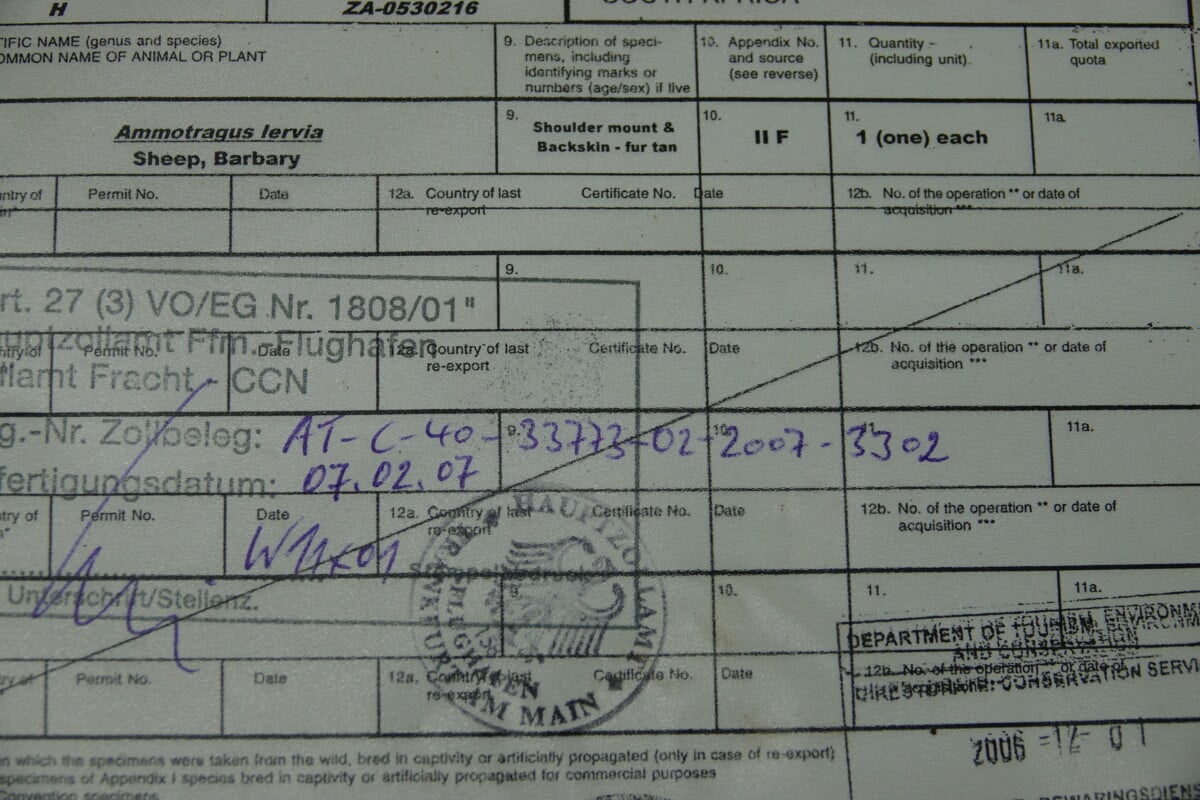 H ZA-0530216 SOUTH AFRICA
TIFIC NAME (genus and species)
OMMON NAME OF ANIMAL OR PLANT
9. Description of speci-
mens, including
identifying marks or
numbers (age/sex) if live
10. Appendix No.
and source
(see reverse)
11. Quantity
(including unit)
11a. Total exported
quota
Ammotragus lervia
Sheep, Barbary
9. Shoulder mount &
Backskin - fur tan
10. II F
11. 1 (one) each
11a.
ntry of Permit No. Date 12a. Country of last Certificate No. Date 12b. No. of the operation ** or date of
re-export acquisition ***
9. 10. 11. 11a.
rt. 27 (3) VO/EG Nr. 1808/01"
auptzollamt Ffm.-Flughafen
ntry of Permit No. Date 12a. Country of last Certificate No. Date 12b. No. of the operation ** or date of
re-export acquisition ***
llamt Fracht - CCN
9. 10. 11. 11a.
g.-Nr. Zollbeleg: AT-C-40-33773-02-2007-3302
fertigungsdatum: 07.02.07
ntry of Permit No. Date 12a. Country of last Certificate No. Date 12b. No. of the operation ** or date of
re-export acquisition ***
Unterschrift/Stellenz.
HAUPTZOLLAMT
FRANKFURT AM MAIN
FLUGHAFEN
9. 10. 11. 11a.
DEPARTMENT OF TOURISM, ENVIRONM
AND CONSERVATION
ry of Permit No. Date 12a. Country of last Certificate No. Date 12b. No. of the operation ** or date of
re-export
DIRECTORATE: CONSERVATION SERVI
2006 -12- 01
in which the specimens were taken from the wild, bred in captivity or artificially propagated (only in case of re-export)
specimens of Appendix I species bred in captivity or artificially propagated for commercial purposes
Convention specimens
BEWARINGSDIENS